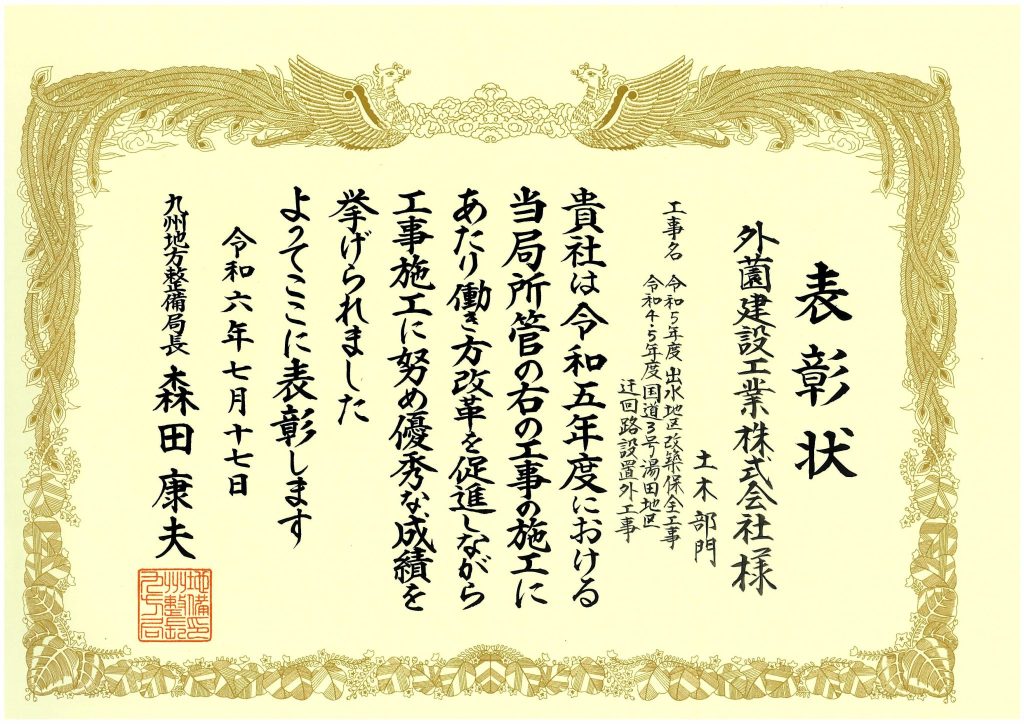 表彰状
外薗建設工業株式会社様
土木部門
工事名 令和5年度 出水地区改築保全工事
令和4・5年度国道3号湯田地区
迂回路設置外工事
貴社は令和五年度における
当局所管の右の工事の施工に
あたり働き方改革を促進しながら
工事施工に努め優秀な成績を
挙げられました
よってここに表彰します
令和六年七月十七日
九州地方整備局長 森田康夫